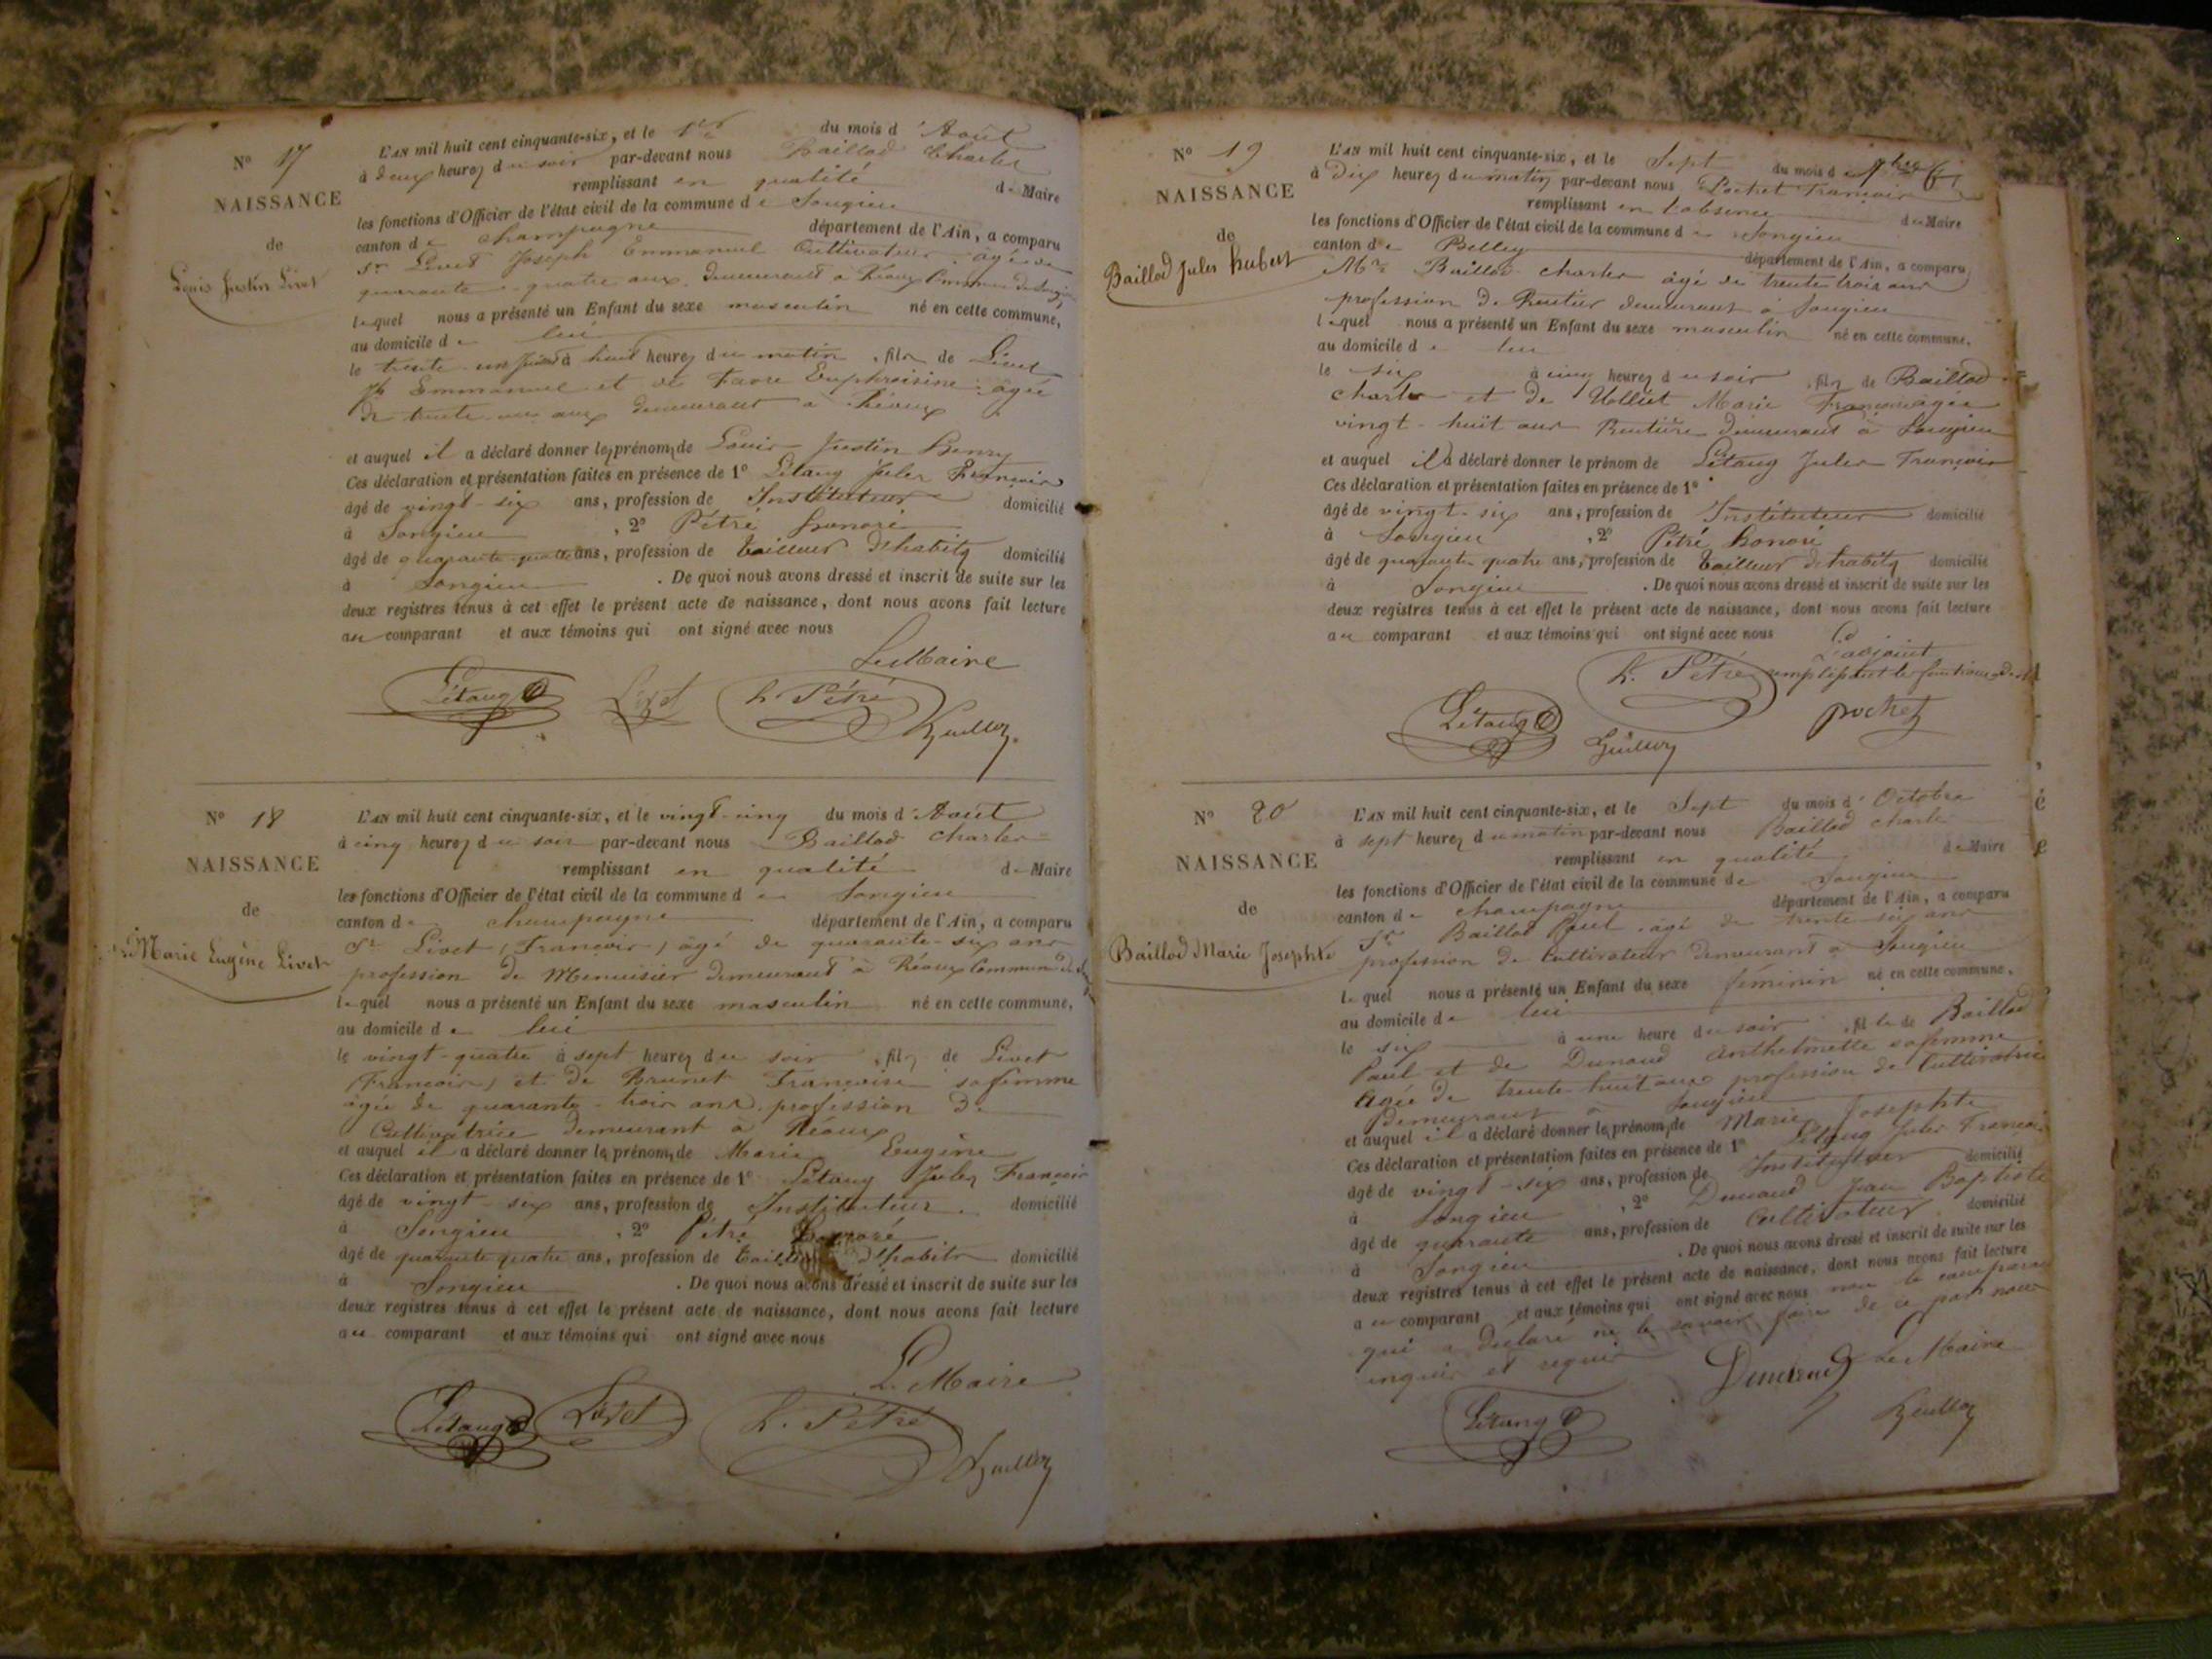 N° 17
NAISSANCE
de
Louis Justin Livet
L'AN mil huit cent cinquante-six, et le 1er du mois d'Août
à deux heures du soir par-devant nous Baillod Charles
remplissant en qualité de Maire
les fonctions d'Officier de l'état civil de la commune de Songieu
canton de Champagne département de l'Ain, a comparu
Sr Livet Joseph Emmanuel Cultivateur âgé de
quarante-quatre ans demeurant à Réaux Commune de Songieu
lequel nous a présenté un Enfant du sexe masculin né en cette commune,
au domicile de lui
le trente-un à huit heures du matin, fils de Livet
Jh Emmanuel et de Favre Euphroisine âgée
de trente ans demeurant à Réaux
et auquel il a déclaré donner les prénoms de Louis Justin Henry
Ces déclaration et présentation faites en présence de 1° Létang Jules François
âgé de vingt-six ans, profession de Instituteur domicilié
à Songieu, 2° Pétré honoré
âgé de quarante quatre ans, profession de tailleur d'habits domicilié
à Songieu. De quoi nous avons dressé et inscrit de suite sur les
deux registres tenus à cet effet le présent acte de naissance, dont nous avons fait lecture
au comparant et aux témoins qui ont signé avec nous
Le Maire
Létang Livet h. Pétré
N° 18
NAISSANCE
de
Marie Eugène Livet
L'AN mil huit cent cinquante-six, et le vingt-cinq du mois d'Août
à cinq heures du soir par-devant nous Baillod Charles
remplissant en qualité de Maire
les fonctions d'Officier de l'état civil de la commune de Songieu
canton de Champagne département de l'Ain, a comparu
Sr Livet (François) âgé de quarante-six ans
profession de Menuisier demeurant à Réaux Commune de
lequel nous a présenté un Enfant du sexe masculin né en cette commune,
au domicile de lui
le vingt-quatre à sept heures du soir, fils de Livet
(François) et de Brunet Françoise sa femme
âgée de quarante-trois ans, profession de
Cultivatrice demeurant à Réaux
et auquel il a déclaré donner les prénoms de Marie Eugène
Ces déclaration et présentation faites en présence de 1° Létang Jules François
âgé de vingt-six ans, profession de Instituteur domicilié
à Songieu, 2° Pétré honoré
âgé de quarante quatre ans, profession de tailleur d'habits domicilié
à Songieu. De quoi nous avons dressé et inscrit de suite sur les
deux registres tenus à cet effet le présent acte de naissance, dont nous avons fait lecture
au comparant et aux témoins qui ont signé avec nous
Le Maire
Létang Livet h. Pétré
N° 19
NAISSANCE
de
Baillod Jules hubert
L'AN mil huit cent cinquante-six, et le Sept du mois de
à Dix heures du matin par-devant nous Pochet François
remplissant en l'absence du Maire
les fonctions d'Officier de l'état civil de la commune de Songieu
canton de Belley département de l'Ain, a comparu
Mr Baillod Charles âgé de trente trois ans
profession de Rentier demeurant à Songieu
lequel nous a présenté un Enfant du sexe masculin né en cette commune,
au domicile de lui
le six à cinq heures du soir, fils de Baillod
Charles et de Marie Françoise âgée
vingt-huit ans Rentière demeurant à Songieu
et auquel il a déclaré donner le prénom de Létang Jules François
Ces déclaration et présentation faites en présence de 1°
âgé de vingt-six ans, profession de Instituteur domicilié
à Songieu, 2° Pétré honoré
âgé de quarante quatre ans, profession de tailleur d'habits domicilié
à Songieu. De quoi nous avons dressé et inscrit de suite sur les
deux registres tenus à cet effet le présent acte de naissance, dont nous avons fait lecture
au comparant et aux témoins qui ont signé avec nous
L'adjoint
h. Pétré remplissant les fonctions de
Létang pochet
N° 20
NAISSANCE
de
Baillod Marie Josephte
L'AN mil huit cent cinquante-six, et le Sept du mois d'Octobre
à sept heures du matin par-devant nous Baillod Charles
remplissant en qualité de Maire
les fonctions d'Officier de l'état civil de la commune de Songieu
canton de Champagne département de l'Ain, a comparu
Sr Baillod Paul, âgé de trente-six ans
profession de Cultivateur demeurant à Songieu
lequel nous a présenté un Enfant du sexe féminin né en cette commune,
au domicile de lui
le six à une heure du soir, fille de Baillod
Paul et de Dunand Anthelmette sa femme
âgée de trente-huit ans profession de Cultivatrice
Demeurant à Songieu
et auquel il a déclaré donner les prénoms de Marie Josephte
Ces déclaration et présentation faites en présence de 1° Létang Jules François
âgé de vingt-six ans, profession de Instituteur domicilié
à Songieu, 2° Dunand Jean Baptiste
âgé de quarante ans, profession de Cultivateur domicilié
à Songieu. De quoi nous avons dressé et inscrit de suite sur les
deux registres tenus à cet effet le présent acte de naissance, dont nous avons fait lecture
au comparant et aux témoins qui ont signé avec nous non le comparant
qui a déclaré ne le savoir faire de ce par nous
enquis et requis
Dunand Le Maire
Létang